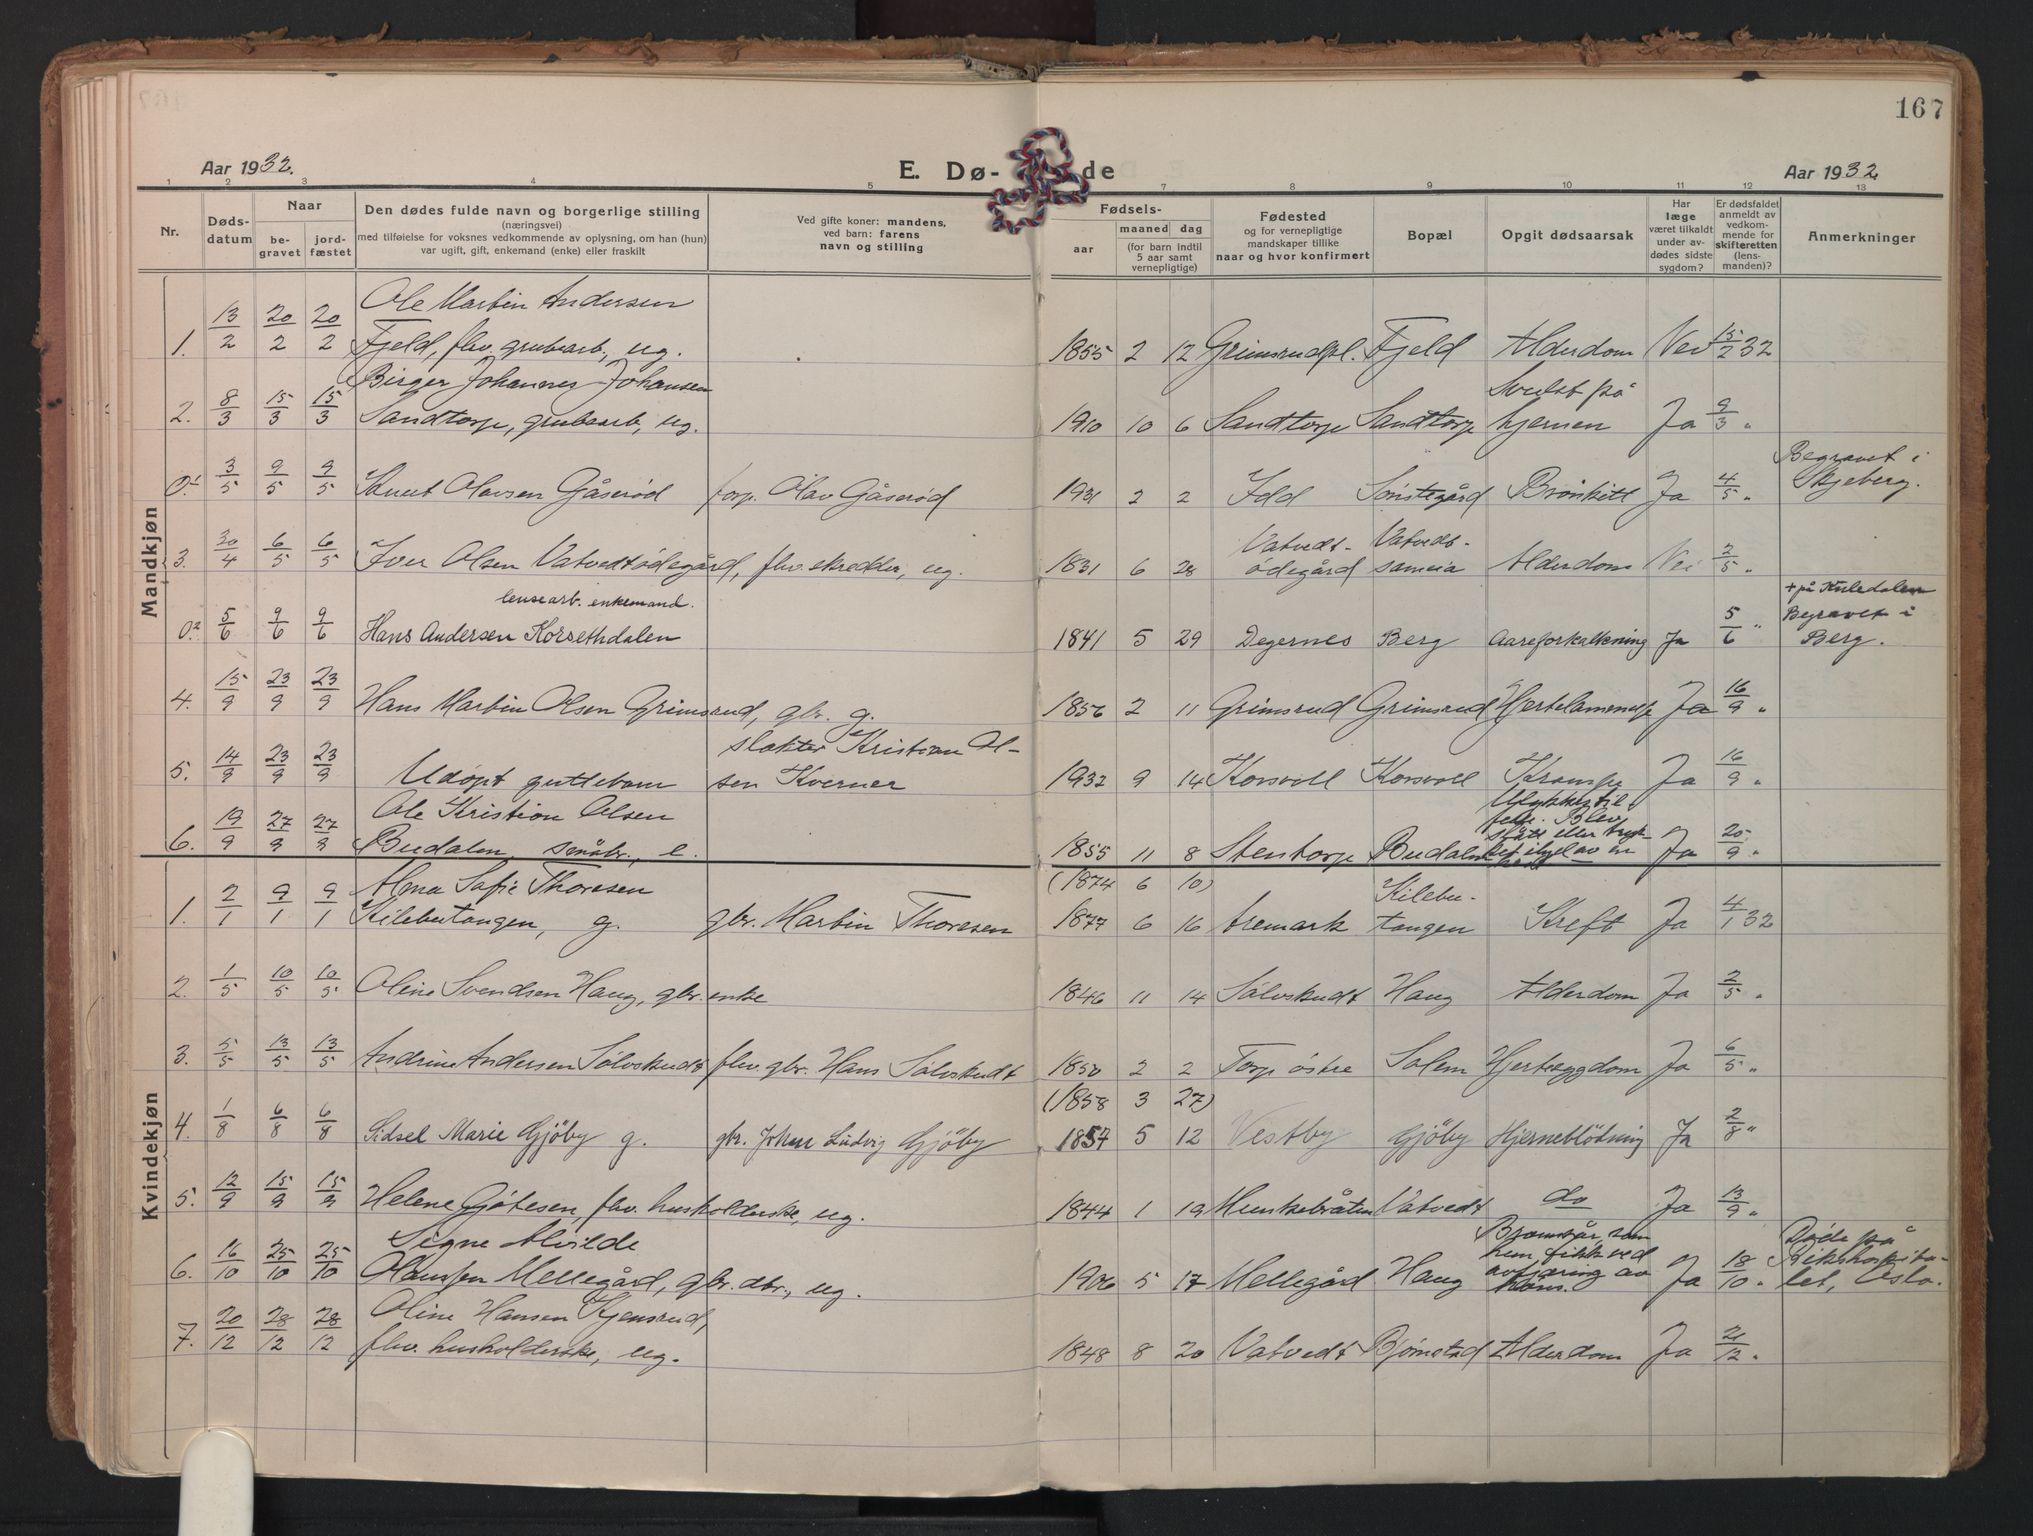 167
Aar 1932.
E. Dø- de
Aar 1932
1 2 3 4 5 7 8 9 10 11 12 13
Nr.
Døds-
datum
Naar
be-
gravet
jord-
fæstet
Den dødes fulde navn og borgerlige stilling
(næringsvei)
med tilføielse for voksnes vedkommende av oplysning, om han (hun)
var ugift, gift, enkemand (enke) eller fraskilt
Ved gifte koner: mandens,
ved barn: farens
navn og stilling
Fødsels-
aar
maaned dag
(for barn indtil
5 aar samt
vernepligtige)
Fødested
og for vernepligtige
mandskaper tillike
naar og hvor konfirmert
Bopæl
Opgit dødsaarsak
Har
læge
været tilkaldt
under av-
dødes sidste
sygdom?
Er dødsfaldet
anmeldt av
vedkom-
mende for
skifteretten
(lens-
manden)?
Anmerkninger
Mandkjøn
Ole Martin Andersen
1. 13/2 20/2 20/2 Fjeld, flv. grubearb., ug. 1855 2 12 Grimsrudpl. Fjeld Alderdom Nei 15/2 32
Birger Johannes Johansen Svulst på
2. 8/3 15/3 15/3 Sandtorp, grubearb, ug. 1910 10 6 Sandtorp Sandtorp hjernen Ja 9/3 "
Begravet i
0.1 3/5 9/5 9/5 Knut Olavsen Gåserød forp. Olav Gåserød 1931 2 2 Idd Sørstegård Bronkitt Ja 4/5 " Skjeberg.
Vatvedt- Vatvedt-
3. 30/4 6/5 6/5 Iver Olsen Vatvedtødegård, flv. skredder, ug. 1831 6 28 ødegård sameia Alderdom Nei 2/5 "
lensearb. enkemand. + på Kuledalen
0.2 5/6 9/6 9/6 Hans Andersen Korsethdalen 1841 5 29 Degernes Berg Aareforkalkning Ja 5/6 " Begravet i
Berg.
4. 15/9 23/9 23/9 Hans Martin Olsen Grimsrud, gbr. g. 1856 2 11 Grimsrud Grimsrud Hjertelammelse Ja 16/9 "
slakter Kristian Ol-
5. 14/9 23/9 23/9 Udøpt guttebarn sen Kverner 1932 9 14 Korsvoll Korsvoll Krampe Ja 16/9 "
Ole Kristian Olsen Ulykkestil-
felle. Blev
6. 19/9 27/9 27/9 Budalen, småbr., e. 1855 11 8 Stentorp Budalen slått eller tryk-
ket ihjel av en
Ja 20/9 "
Kvindekjøn
Alma Sofie Thoresen (1874 6 10) Kilebu-
1. 2/1 9/1 9/1 Kilebutangen, g. gbr. Martin Thoresen 1877 6 16 Aremark tangen Kreft Ja 4/1 32
2. 1/5 10/5 10/5 Oline Svendsen Haug, gbr. enke 1846 11 14 Sølvskudt Haug Alderdom Ja 2/5 "
3. 5/5 13/5 13/5 Andrine Andersen Sølvskudt flv. gbr. Hans Sølvskudt 1850 2 2 Torp østre Solem Hjertesygdom Ja 6/5 "
(1858 3 27)
4. 1/8 6/8 6/8 Sidsel Marie Gjöby g. gbr. Johan Ludvig Gjöby 1857 5 12 Vestby Gjöby Hjerneblödning Ja 2/8 "
5. 12/9 15/9 15/9 Helene Gjötesen, flv. husholderske, ug. 1844 1 19 Munkebråten Vatvedt do Ja 13/9 "
Signe Alvilde Brannsår, som Døde på
6. 16/10 25/10 25/10 Olaussen Mellegård, gbr. dtr., ug. 1906 5 17 Mellegård Haug hun fikk ved
avfjæring av
høns. Ja 18/10 " Rikshospita-
let, Oslo.
Oline Hansen Kjensrud,
7. 20/12 28/12 28/12 flv. husholderske, ug. 1848 8 20 Vatvedt Bjørnstad Alderdom Ja 21/12 "